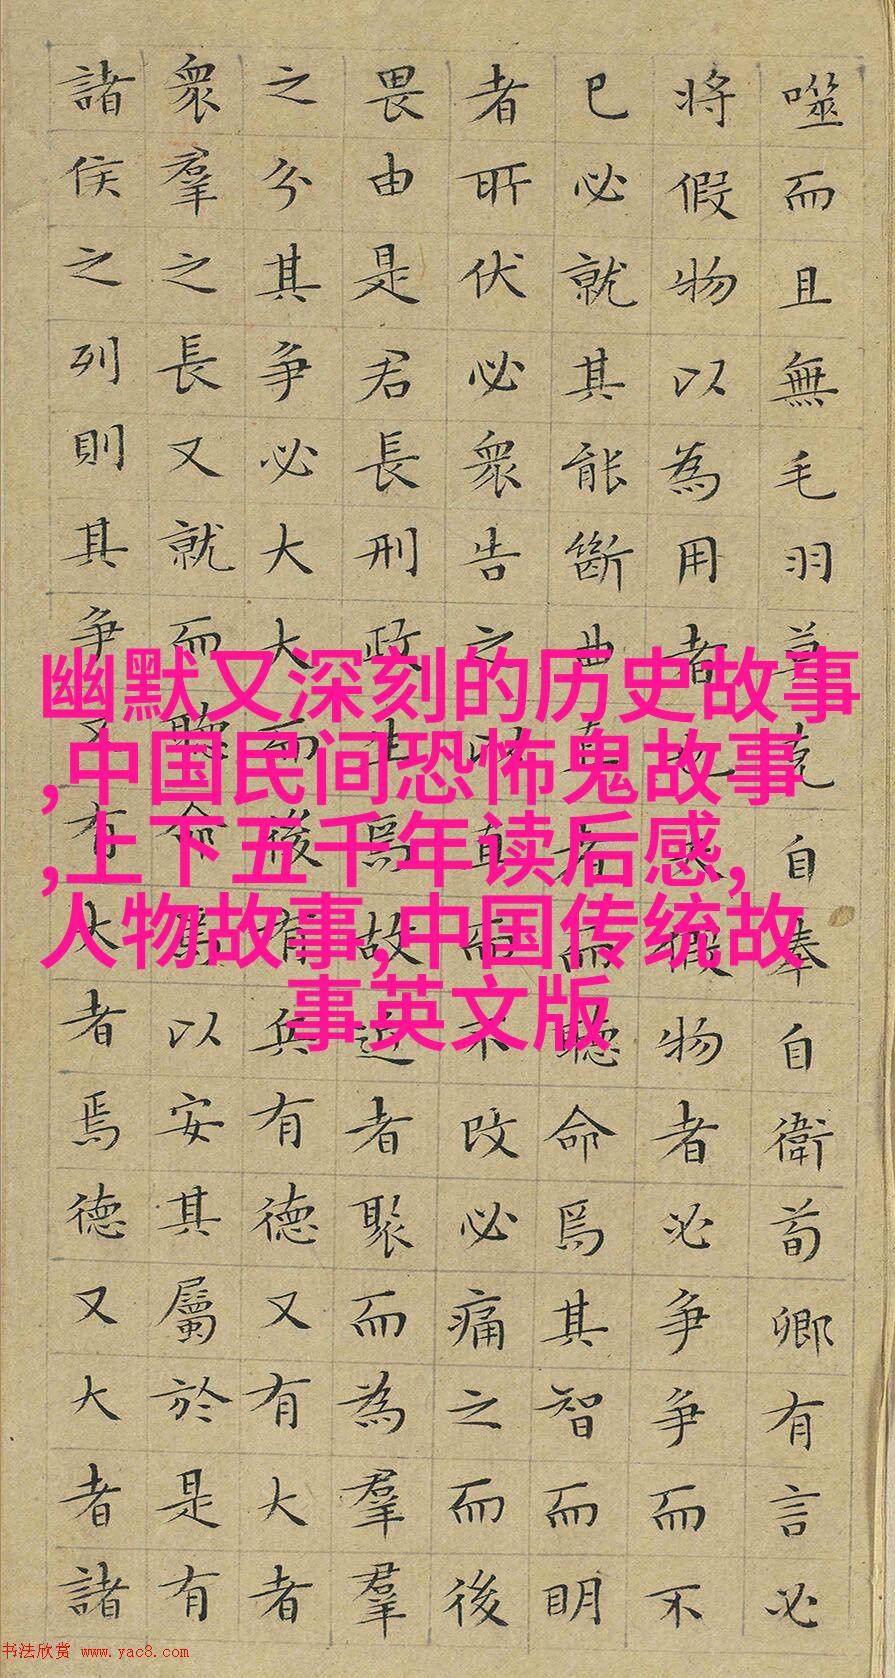 噬而且無毛羽莫克自奉自衛荀卿有言必
將假物以為用者也夫假物者必爭爭而不
已必就其能斷曲直者而聽命焉其智而明
者所伏必衆告之以直而不改必痛之而後
畏由是君長刑政生焉故近者聚而為羣羣
之分其爭必大大而後有兵有德又有大者
衆羣之長又就而聽命焉以安其屬於是有
諸侯之列則其爭又有大者焉德又大者諸
幽默又深刻的历史故事
,中国民间恐怖鬼故事
,上下五千年读后感,
人物故事,中国传统故
事英文版
书法欣赏 www.yac8.com